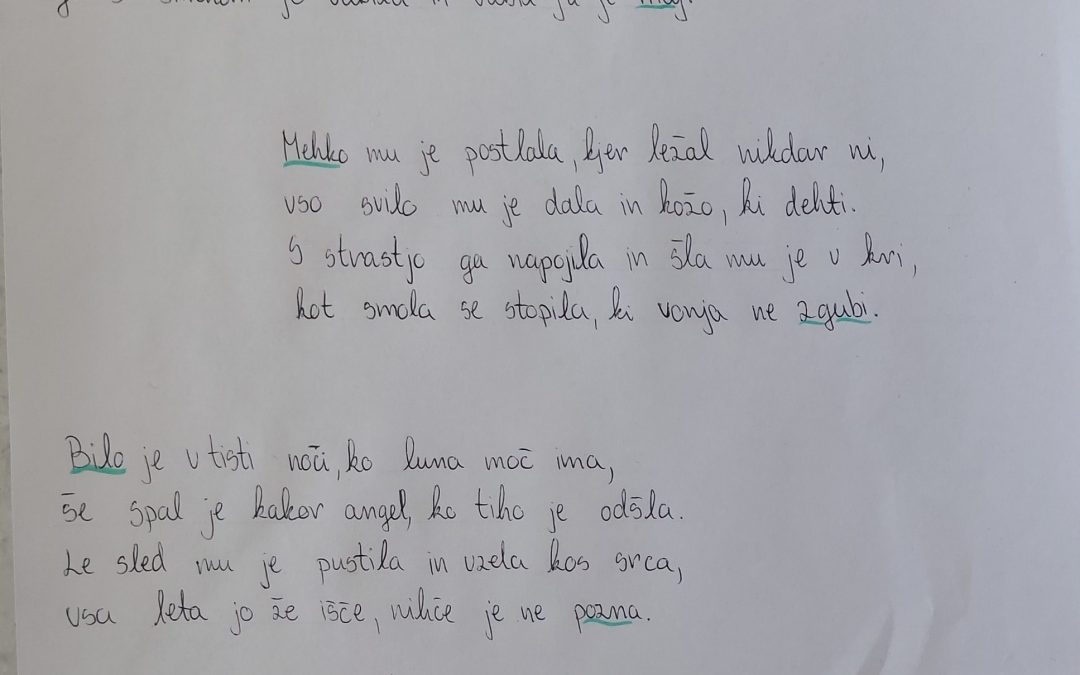 in
Mehko mu je postlala, kjer ležal nikdar ni,
vso svilo mu je dala in kožo, ki dehti.
S strastjo ga napojila in šla mu je v kri,
kot smola se stopila, ki vonja ne zgubi.
Bilo je v tisti noči, ko luna moč ima,
še spal je kakor angel, ko tiho je odšla.
Le sled mu je pustila in vzela kos srca,
vsa leta jo že išče, nihče je ne pozna.